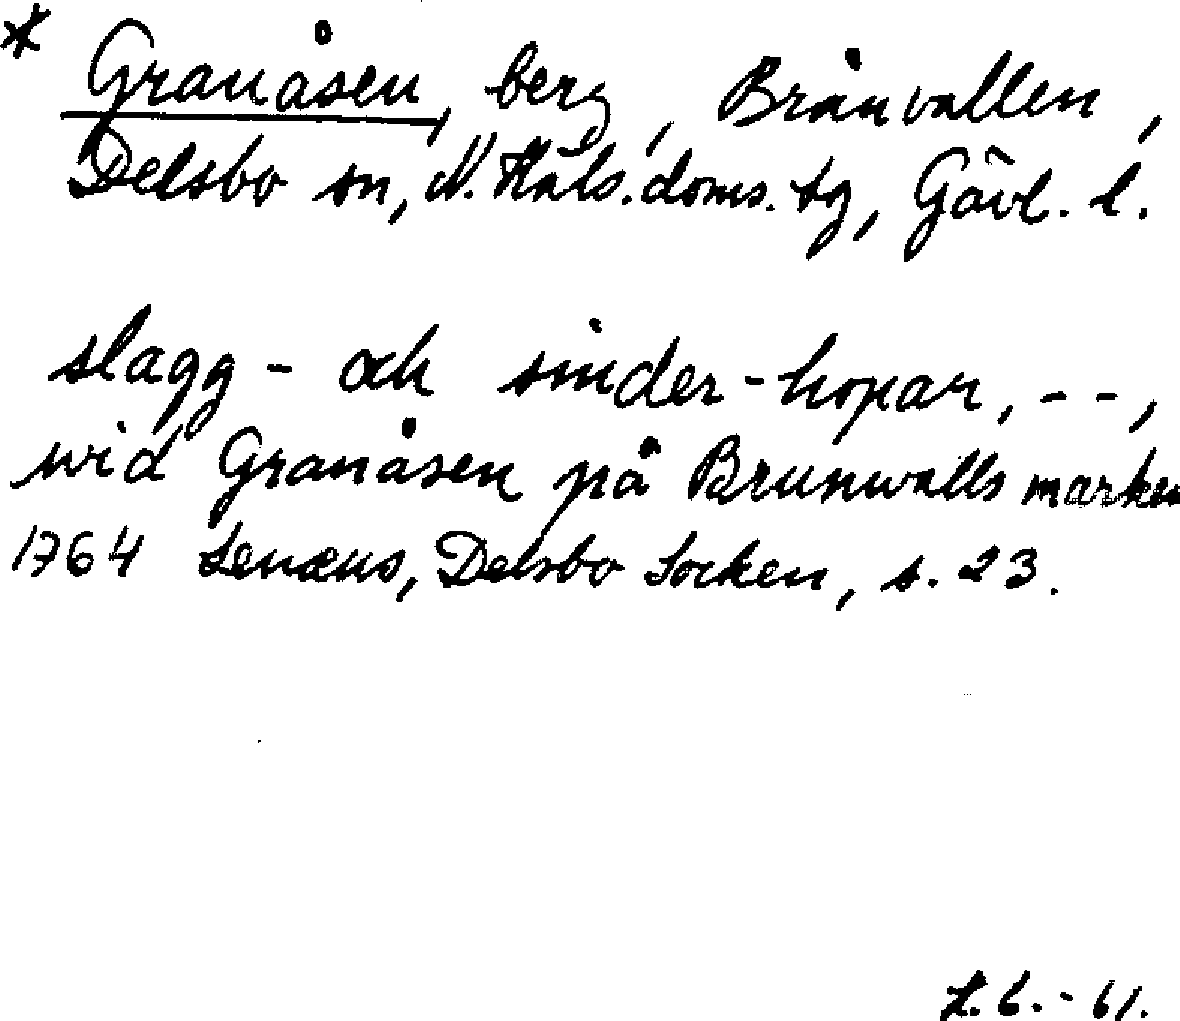 * Granåsen, berg, Brånvallen,
Delsbo sn, N. Häls. doms. tg, Gävl. l.
slagg- och sinder-hopar, - -,
wid Granåsen på Brunwalls marken
1764 Lenæus, Delsbo Socken, s. 23.
-61.